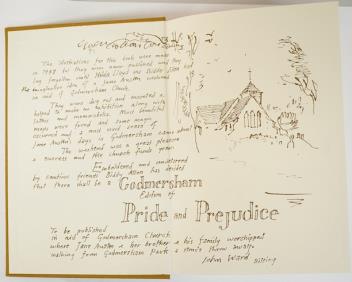 The illustrations for this book were done
in 1948 but they were never published and they
lay forgotten until Hilda Lloyd and Biddy Allen had
the imaginative idea of a Jane Austen weekend
in aid of Godmersham Church.
They were dug out and mounted &
helped to make an exhibition along with
letters and memorabilia. Most beautiful
were found and some
and a real sense of
Jane Austen's days in Godmersham came about
The weekend was a great pleasure
a success and the church funds grew.
Emboldened and
by cautious friends Biddy Allen has decided
that there shall be a Godmersham
Edition of
Pride and Prejudice
To be published
in aid of Godmersham Church
where Jane Austen & her brother & his family worshipped
walking from Godmersham Park a stone's throw away.
John Ward